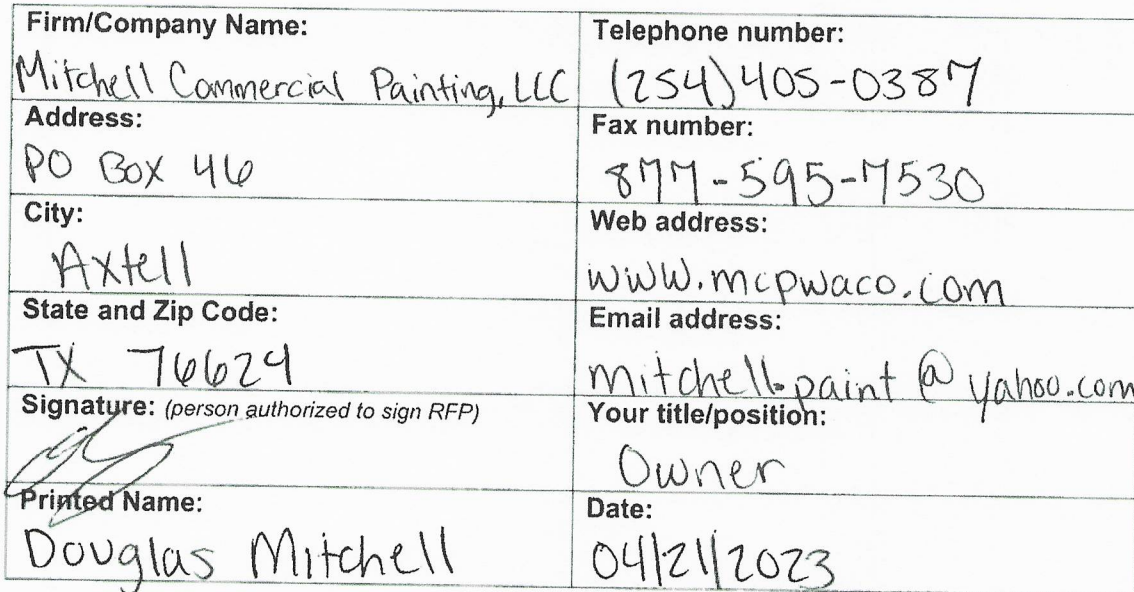 Firm/Company Name:
Mitchell Commercial Painting, LLC
Telephone number:
(254)405-0387
Address:
PO Box 46
Fax number:
877-595-7530
City:
Axtell
Web address:
www.mcpwaco.com
State and Zip Code:
TX 76624
Email address:
mitchell.paint@yahoo.com
Signature: (person authorized to sign RFP)
Your title/position:
Owner
Printed Name:
Douglas Mitchell
Date:
04/21/2023